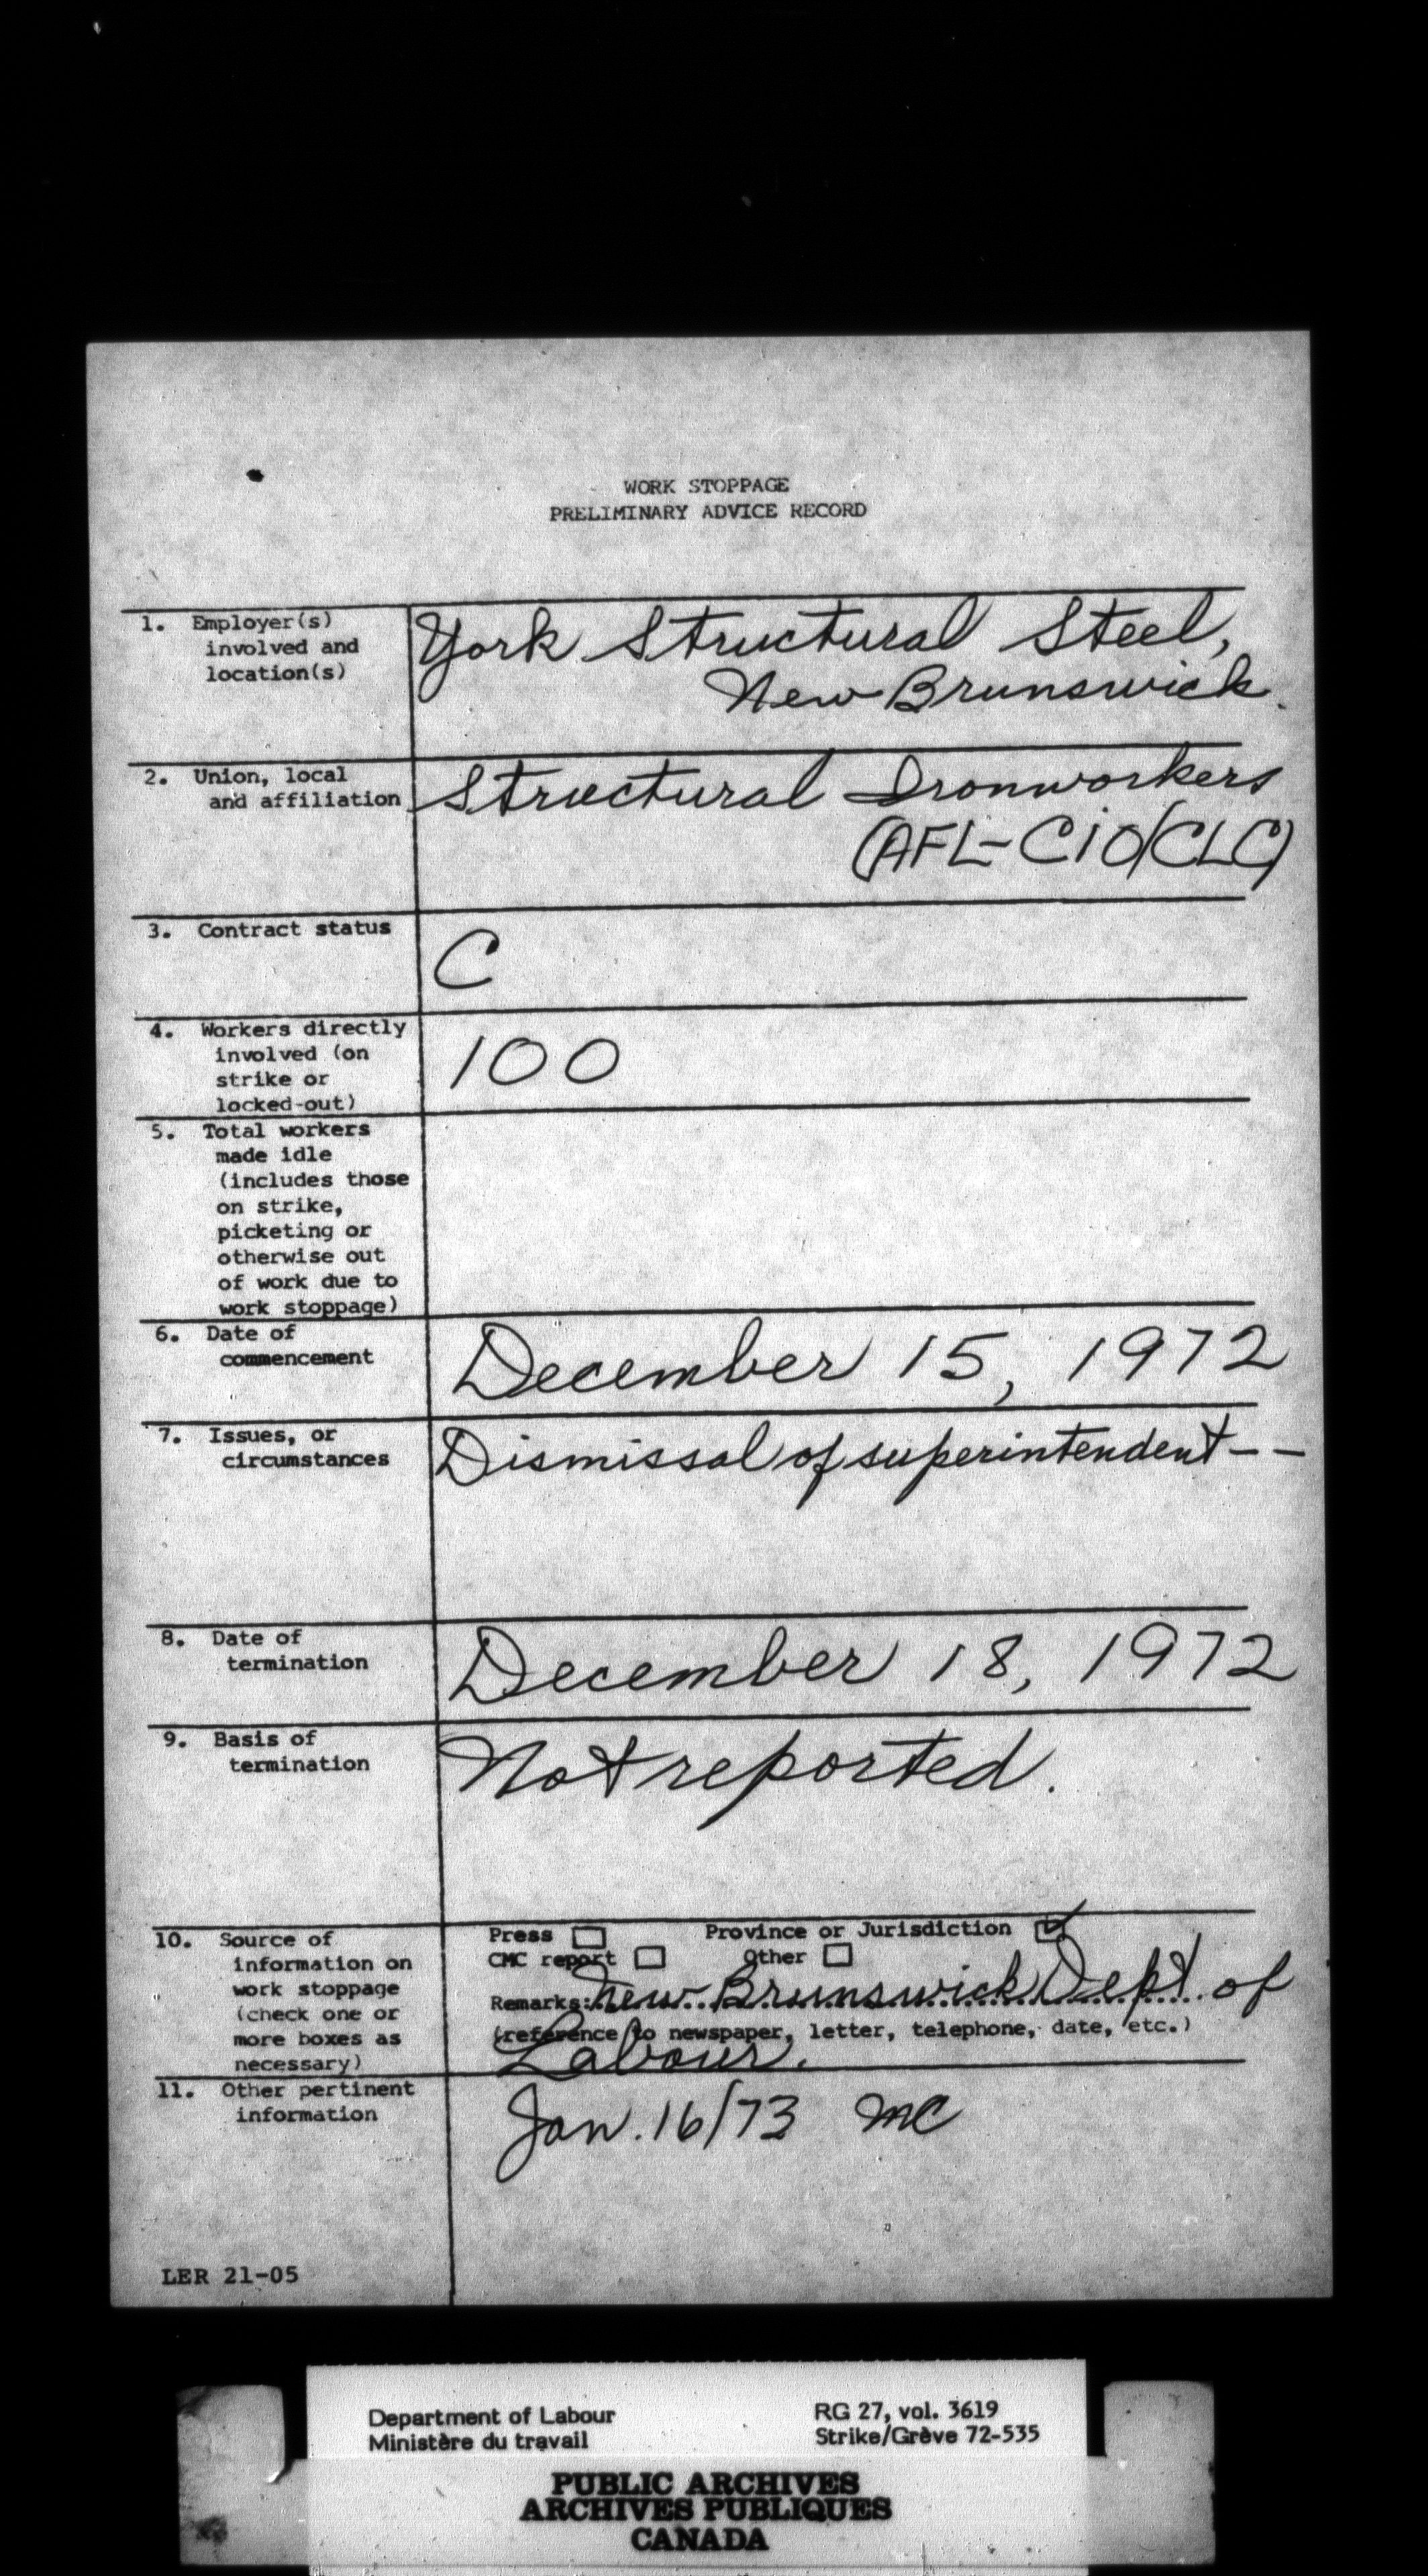 WORK STOPPAGE
PRELIMINARY ADVICE RECORD
1. Employer(s)
involved and
location(s)
York Structural Steel,
New Brunswick.
2. Union, local
and affiliation
Structural Ironworkers
(AFL-CIO/CLC)
3. Contract status
C
4. Workers directly
involved (on
strike or
locked-out)
100
5. Total workers
made idle
(includes those
on strike,
picketing or
otherwise out
of work due to
work stoppage)
6. Date of
commencement
December 15, 1972
7. Issues, or
circumstances
Dismissal of superintendent--
8. Date of
termination
December 18, 1972
9. Basis of
termination
Not reported.
10. Source of
information on
work stoppage
(check one or
more boxes as
necessary)
Press Province or Jurisdiction ✓
CMC report Other
Remarks: New Brunswick Dept. of
(reference to newspaper, letter, telephone, date, etc.)
Labour.
11. Other pertinent
information
Jan. 16/73 MC
LER 21-05
Department of Labour
Ministère du travail
RG 27, vol. 3619
Strike/Grève 72-535
PUBLIC ARCHIVES
ARCHIVES PUBLIQUES
CANADA